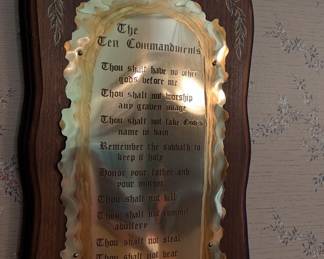 The
Ten Commandments
Thou shalt have no other
gods before me
Thou shalt not worship
any graven image
Thou shalt not take God's
name in vain
Remember the sabbath to
keep it holy
Honor your father and
your mother
Thou shalt not kill
Thou shalt not commit
adultery
Thou shalt not steal
Thou shalt not bear